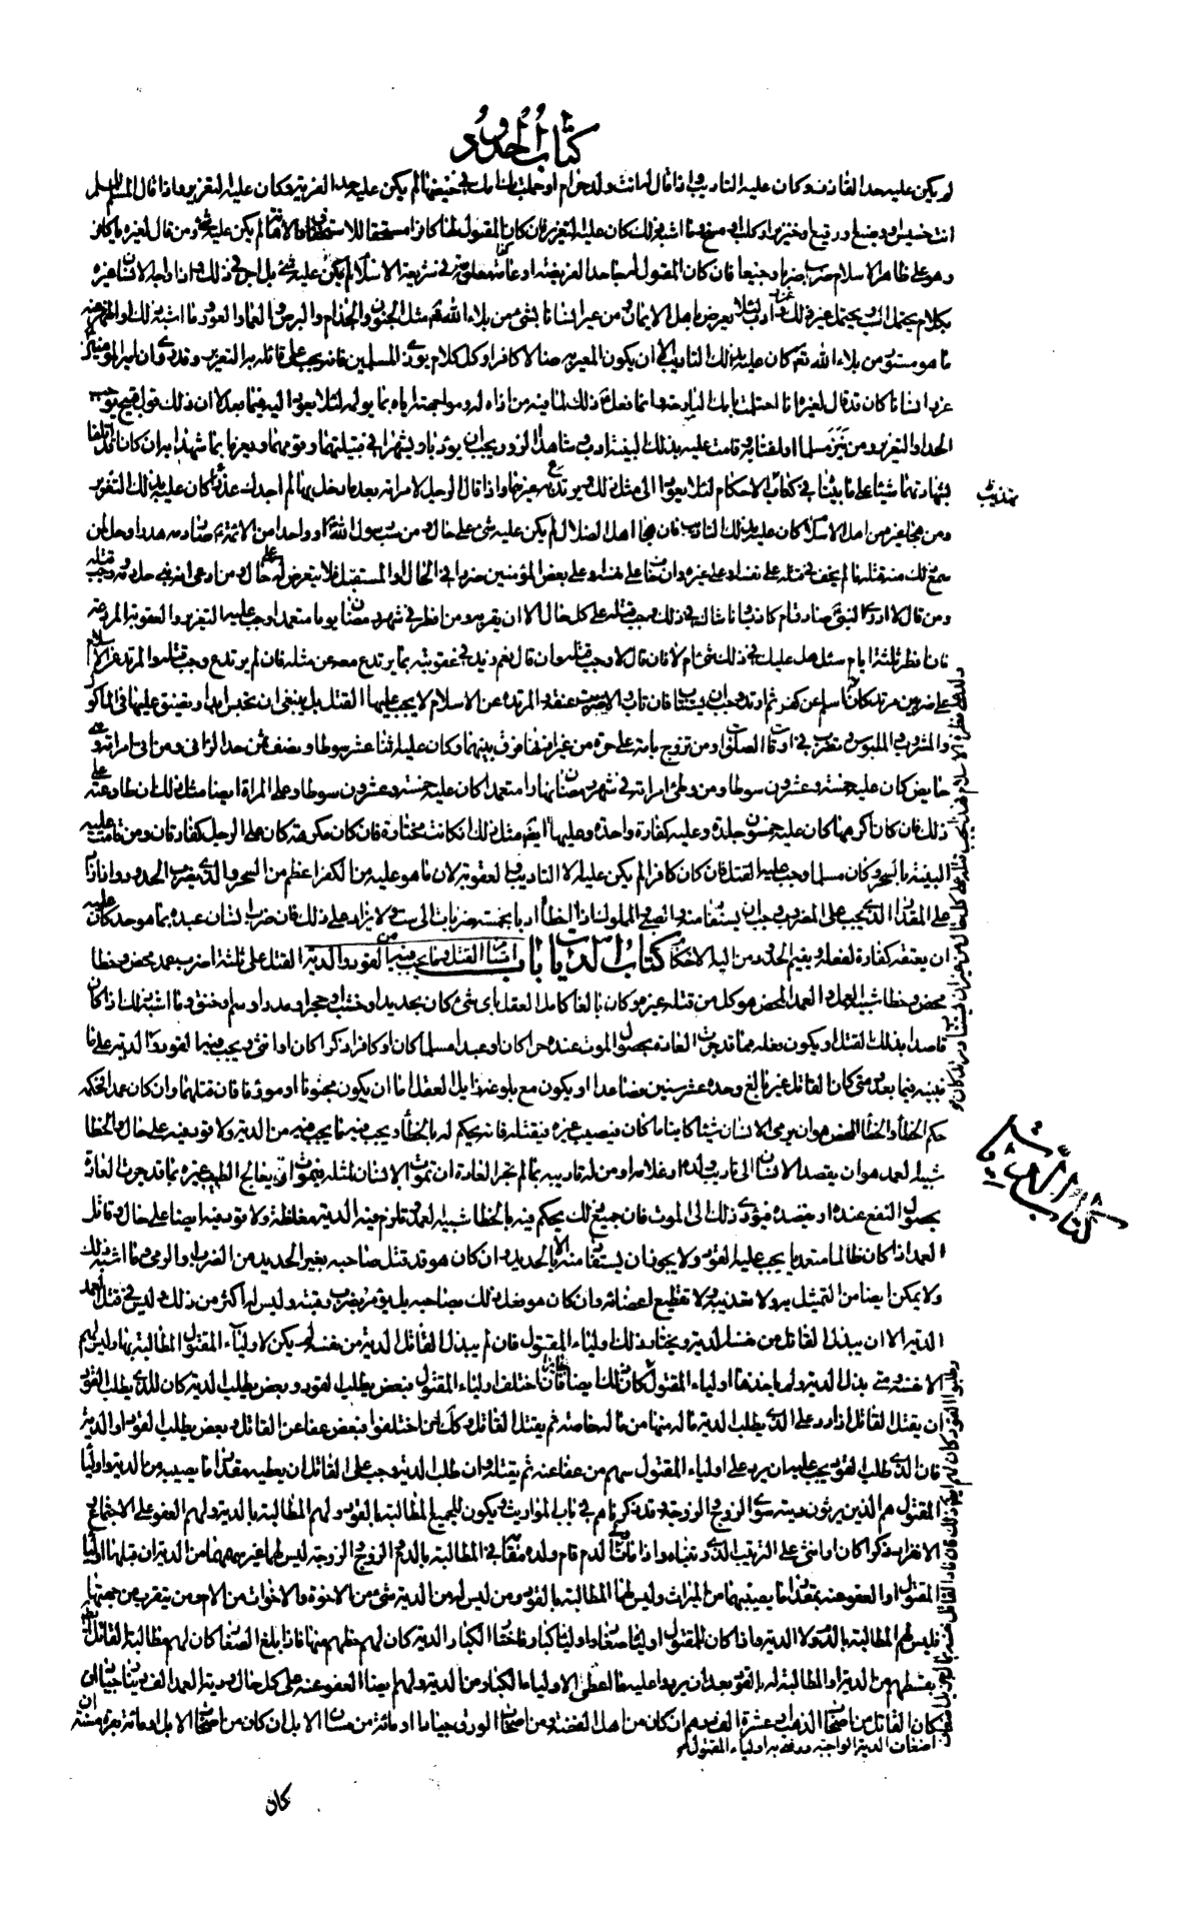 كتاب الحدود
لم يكن عليه حد القاذف وكان عليه التأديب واذا قال له انت ولد حرام او حملت بك امك في حيضها لم يكن عليه حد الفرية وكان عليه التعزير واذا قال المسلم
انت خسيس او وضيع او رقيع او خنزير او كلب او مسخ وما اشبه ذلك كان عليه التعزير فان كان المقول له كافرا مستحقا للاستخفاف والاهانة لم يكن عليه شئ ومن قال لغيره يا كافر
وهو على ظاهر الاسلام ضرب ضربا وجيعا فان كان المقول له جاحدا لفريضة او عامة معلومة في شريعة الاسلام لم يكن عليه شئ بل اجر في ذلك واذا واجه الانسان غيره
بكلام يحتمل السب ويحتمل غيره عزر في ذلك وادب لئلا يعرض باهل الايمان ومن عير انسانا بشئ من بلاء الله تع مثل الجنون والجذام والبرص والعما والعور وما اشبه ذلك او اظهر عنه
ما هو مستور من بلاء الله تع كان عليه بذلك التأديب الا ان يكون المعير به ضالا كافرا وكل كلام يؤذي المسلمين فانه يجب على قائله به التعزير وقد روى ان امير المؤمنين
عزر انسانا كان قد قال لغيره انا احتلمت بامك البارحة وانما فعل ذلك لما فيه من اذاه له ومواجهته اياه بما يؤلمه لئلا يعود اليه فيما بعد لا ان ذلك قول قبيح يوجب
الحد او التعزير ومن نبز مسلما او اغتابه وقامت عليه بذلك البينة ادب وشاهدا الزور يجب ان يؤدبا ويشهرا في قبيلتهما وقومهما ويغرما بما شهدا به ان كان قد اتلفا
بشهادتهما شيئا على ما بيناه في كتاب الاحكام لئلا يعودا الى مثل ذلك ويرتدع به غيرهما واذا قال الرجل لامرأته بعد ما دخل بها لم اجدك عذراء كان عليه بذلك التعزير
ومن هجا غيره من اهل الاسلام كان عليه بذلك التأديب فان هجا اهل الضلال لم يكن عليه شئ على حال ومن سب رسول الله او واحدا من الائمة صار دمه هدرا وحل لمن
سمع ذلك منه قتله ما لم يخف في قتله على نفسه او على غيره وان خاف على نفسه او على بعض المؤمنين ضررا في الحال او المستقبل فلا يتعرض له على حال ومن ادعى انه نبي حل دمه ووجب قتله
ومن قال لا ادري النبي صادق ام كاذب وانا شاك في ذلك وجب قتله على كل حال الا ان يقر به ومن افطر في شهر رمضان يوما متعمدا وجب عليه التعزير والعقوبة المردعة
فان افطر ثلثة ايام سئل هل عليك في ذلك شئ ام لا فان قال لا وجب قتله وان قال نعم زيد في عقوبته بما يرتدع معه عن مثله فان لم يرتدع وجب قتله والمرتد عن الاسلام
على ضربين مرتد كان اسلم عن كفر ثم ارتد وجب ان يستتاب فان تاب والا ضربت عنقه والمرتدة عن الاسلام لا يجب عليها القتل بل ينبغي ان تحبس ابدا ويضيق عليها في الماكول
والمشروب والملبوس وتضرب في اوقات الصلوات ومن تزوج بامة على حرة من غير اذنها فرق بينهما وكان عليه اثنا عشر سوطا ونصف ثمن حد الزاني ومن اتى امرأته وهي
حايض كان عليه خمسة وعشرون سوطا ومن وطئ امرأته في شهر رمضان نهارا متعمدا كان عليه خمسة وعشرون سوطا وعلى المرأة ايضا مثل ذلك ان طاوعته على
ذلك فان كان اكرهها كان عليه خمسون جلدة وعليه كفارة واحدة وعليها ايضا مثل ذلك ان كانت مختارة فان كان مكرهة كان على الرجل كفارتان ومن قامت عليه
البينة بالسحر وكان مسلما وجب عليه القتل فان كان كافرا لم يكن عليه الا التاديب والعقوبة لان ما هو عليه من الكفر اعظم من السحر والذي يضرب الحدود اذا زاد
على المقدار الذي يجب على المضروب وجب ان يستقاد منه والصبي والمملوك اذا اخطأا ادبا بخمسة ضربات الى ست ولا يزاد على ذلك فان ضرب انسان عبده بما هو حد كان عليه
ان يعتقه كفارة لفعله ويقيم الحدود من اليه الاحكام كتاب الديات باب اقسام القتل وما يجب فيه من القود والدية القتل على ثلثة اضرب عمد محض وخطا
محض وخطا شبيه العمد والعمد المحض هو كل من قتل غيره وكان بالغا كامل العقل باى شئ كان بحديد او خشب او حجر او مدر او سم او خنق وما اشبه ذلك اذا كان
قاصدا بذلك القتل او يكون بفعله مما قد جرت العادة بحصول الموت عنده حرا كان او عبدا مسلما كان او كافرا ذكرا كان او انثى ويجب فيه القود او الدية على ما
نبينه فيما بعد ومتى كان القاتل غير بالغ وحده عشر سنين فصاعدا او يكون مع بلوغه زايل العقل اما ان يكون مجنونا او مؤوفا فان قتلهما وان كان عمدا فحكمه
حكم الخطأ والخطأ المحض هو ان يرمى الانسان شيئا كاينا ما كان فيصيب غيره فيقتله فانه يحكم له بالخطأ ويجب فيه ما يجب فيه من الدية ولا قود فيه على حال والخطا
شبيه العمد هو ان يقصد الانسان الى تاديب ولده او غلامه او من له تاديبه بما لم تجر العادة ان يموت الانسان بمثله فيموت او يعالج الطبيب غيره بما قد جرت العادة
بحصول النفع عنده او يفصده فيؤدي ذلك الى الموت فان جميع ذلك يحكم فيه بالخطا شبيه العمد وتلزم فيه الدية مغلظة ولا قود فيه ايضا على حال وقاتل
العمد اذا كان ظالما متعديا يجب عليه القود ولا يجوز ان يستقاد منه الا بالحديد وان كان هو قد قتل صاحبه بغير الحديد من الضرب او الرمي وما اشبه ذلك
ولا يمكن ايضا من التمثيل به ولا تعذيبه ولا تقطيع اعضائه وان كان هو فعل ذلك بصاحبه بل يؤمر بضرب رقبته وليس له اكثر من ذلك وليس في قتل العمد
الدية الا ان يبذل القاتل من نفسه الدية ويختار ذلك اولياء المقتول فان لم يبذل القاتل الدية من نفسه لم يكن لاولياء المقتول المطالبة بها وليس لهم
الا نفسه ومتى بذل الدية ولم ياخذها اولياء المقتول كان ذلك ايضا فان اختلف اولياء المقتول فبعض يطلب القود وبعض يطلب الدية كان للذي يطلب القود
ان يقتل القاتل اذا رد على الذي يطلب الدية ماله منها من ماله خاصة ثم يقتل القاتل وكذلك ان اختلفوا فبعض عفا عن القاتل وبعض يطلب القود او الدية
فان الذي طلب القود يجب عليه ان يرد على اولياء المقتول سهم من عفا عنه ثم يقتله وان طلب الدية وجب على القاتل ان يعطيه مقدار ما يصيبه من الدية واولياء
المقتول هم الذين يرثون ديته سوى الزوج والزوجة وقد ذكرناهم في باب المواريث يكون للجميع المطالبة بالقود ولهم المطالبة بالدية ولهم العفو على الاجتماع
الانفراد ذكرا كان او انثى على الترتيب الذي رتبناه واذا مات ولي الدم قام ولده مقامه في المطالبة بالدم والزوج والزوجة ليس لهما غير سهمهما من الدية ان قبلها اولياء
المقتول او العفو عنه بمقدار ما يصيبهما من الميراث وليس لهما المطالبة بالقود ومن ليس له من الدية شئ من الاخوة والاخوات من الام ومن يتقرب من جهتها
فليس لهم المطالبة بالدم ولا الدية واذا كان للمقتول اولياء صغار واولياء كبار فاختار الكبار الدية كان لهم حظهم منها فاذا بلغ الصغار كان لهم مطالبة القاتل
بقسطهم من الدية او المطالبة له بالقود بعد ان يردوا عليه ما اعطى الاولياء الكبار من الدية ولهم ايضا العفو عنه على كل حال ودية العمد الف دينار جياد ان
كان القاتل من اصحاب الذهب وعشرة الف درهم ان كان من اهل الفضة ومن اصحاب الورق جيادا او مائة من مسان الابل ان كان من اصحاب الابل او مائة بقرة مسنة ان
كان
تهذيب
كتاب الديات